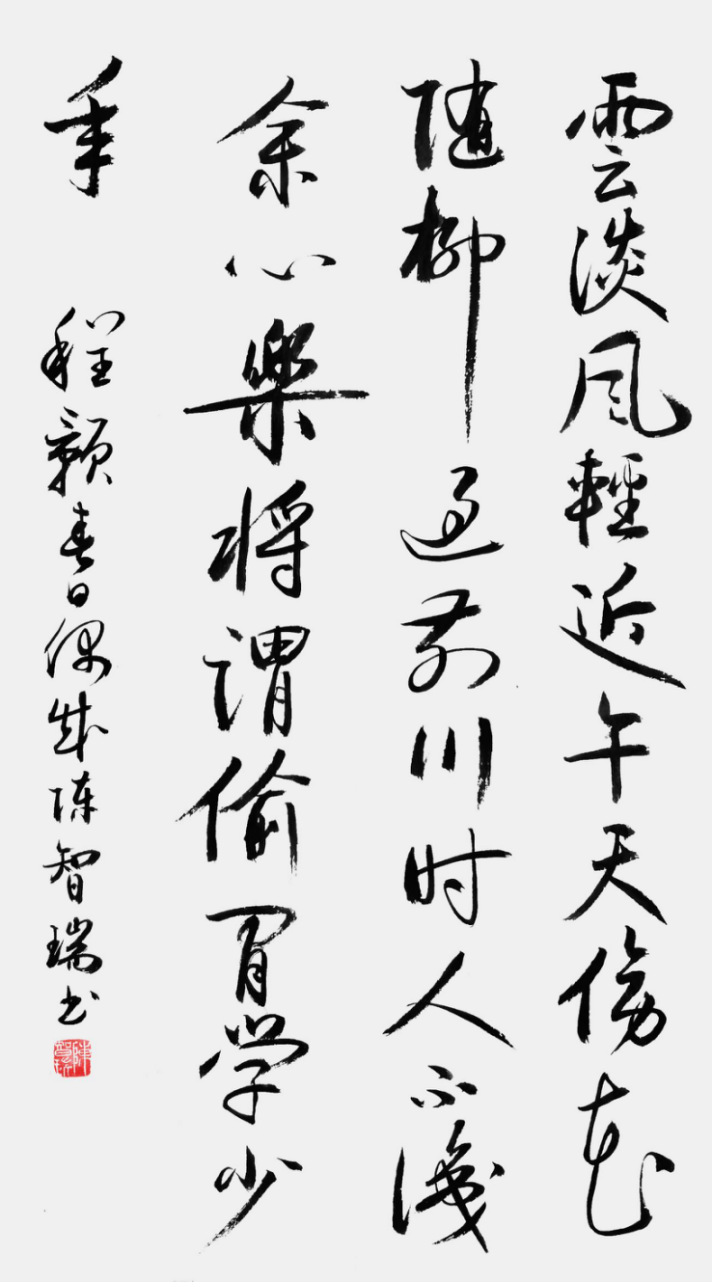 雲淡風輕近午天傍花
随柳過前川时人不識
余心樂將謂偷閒学少
年
程颢春日偶成陈智瑞书